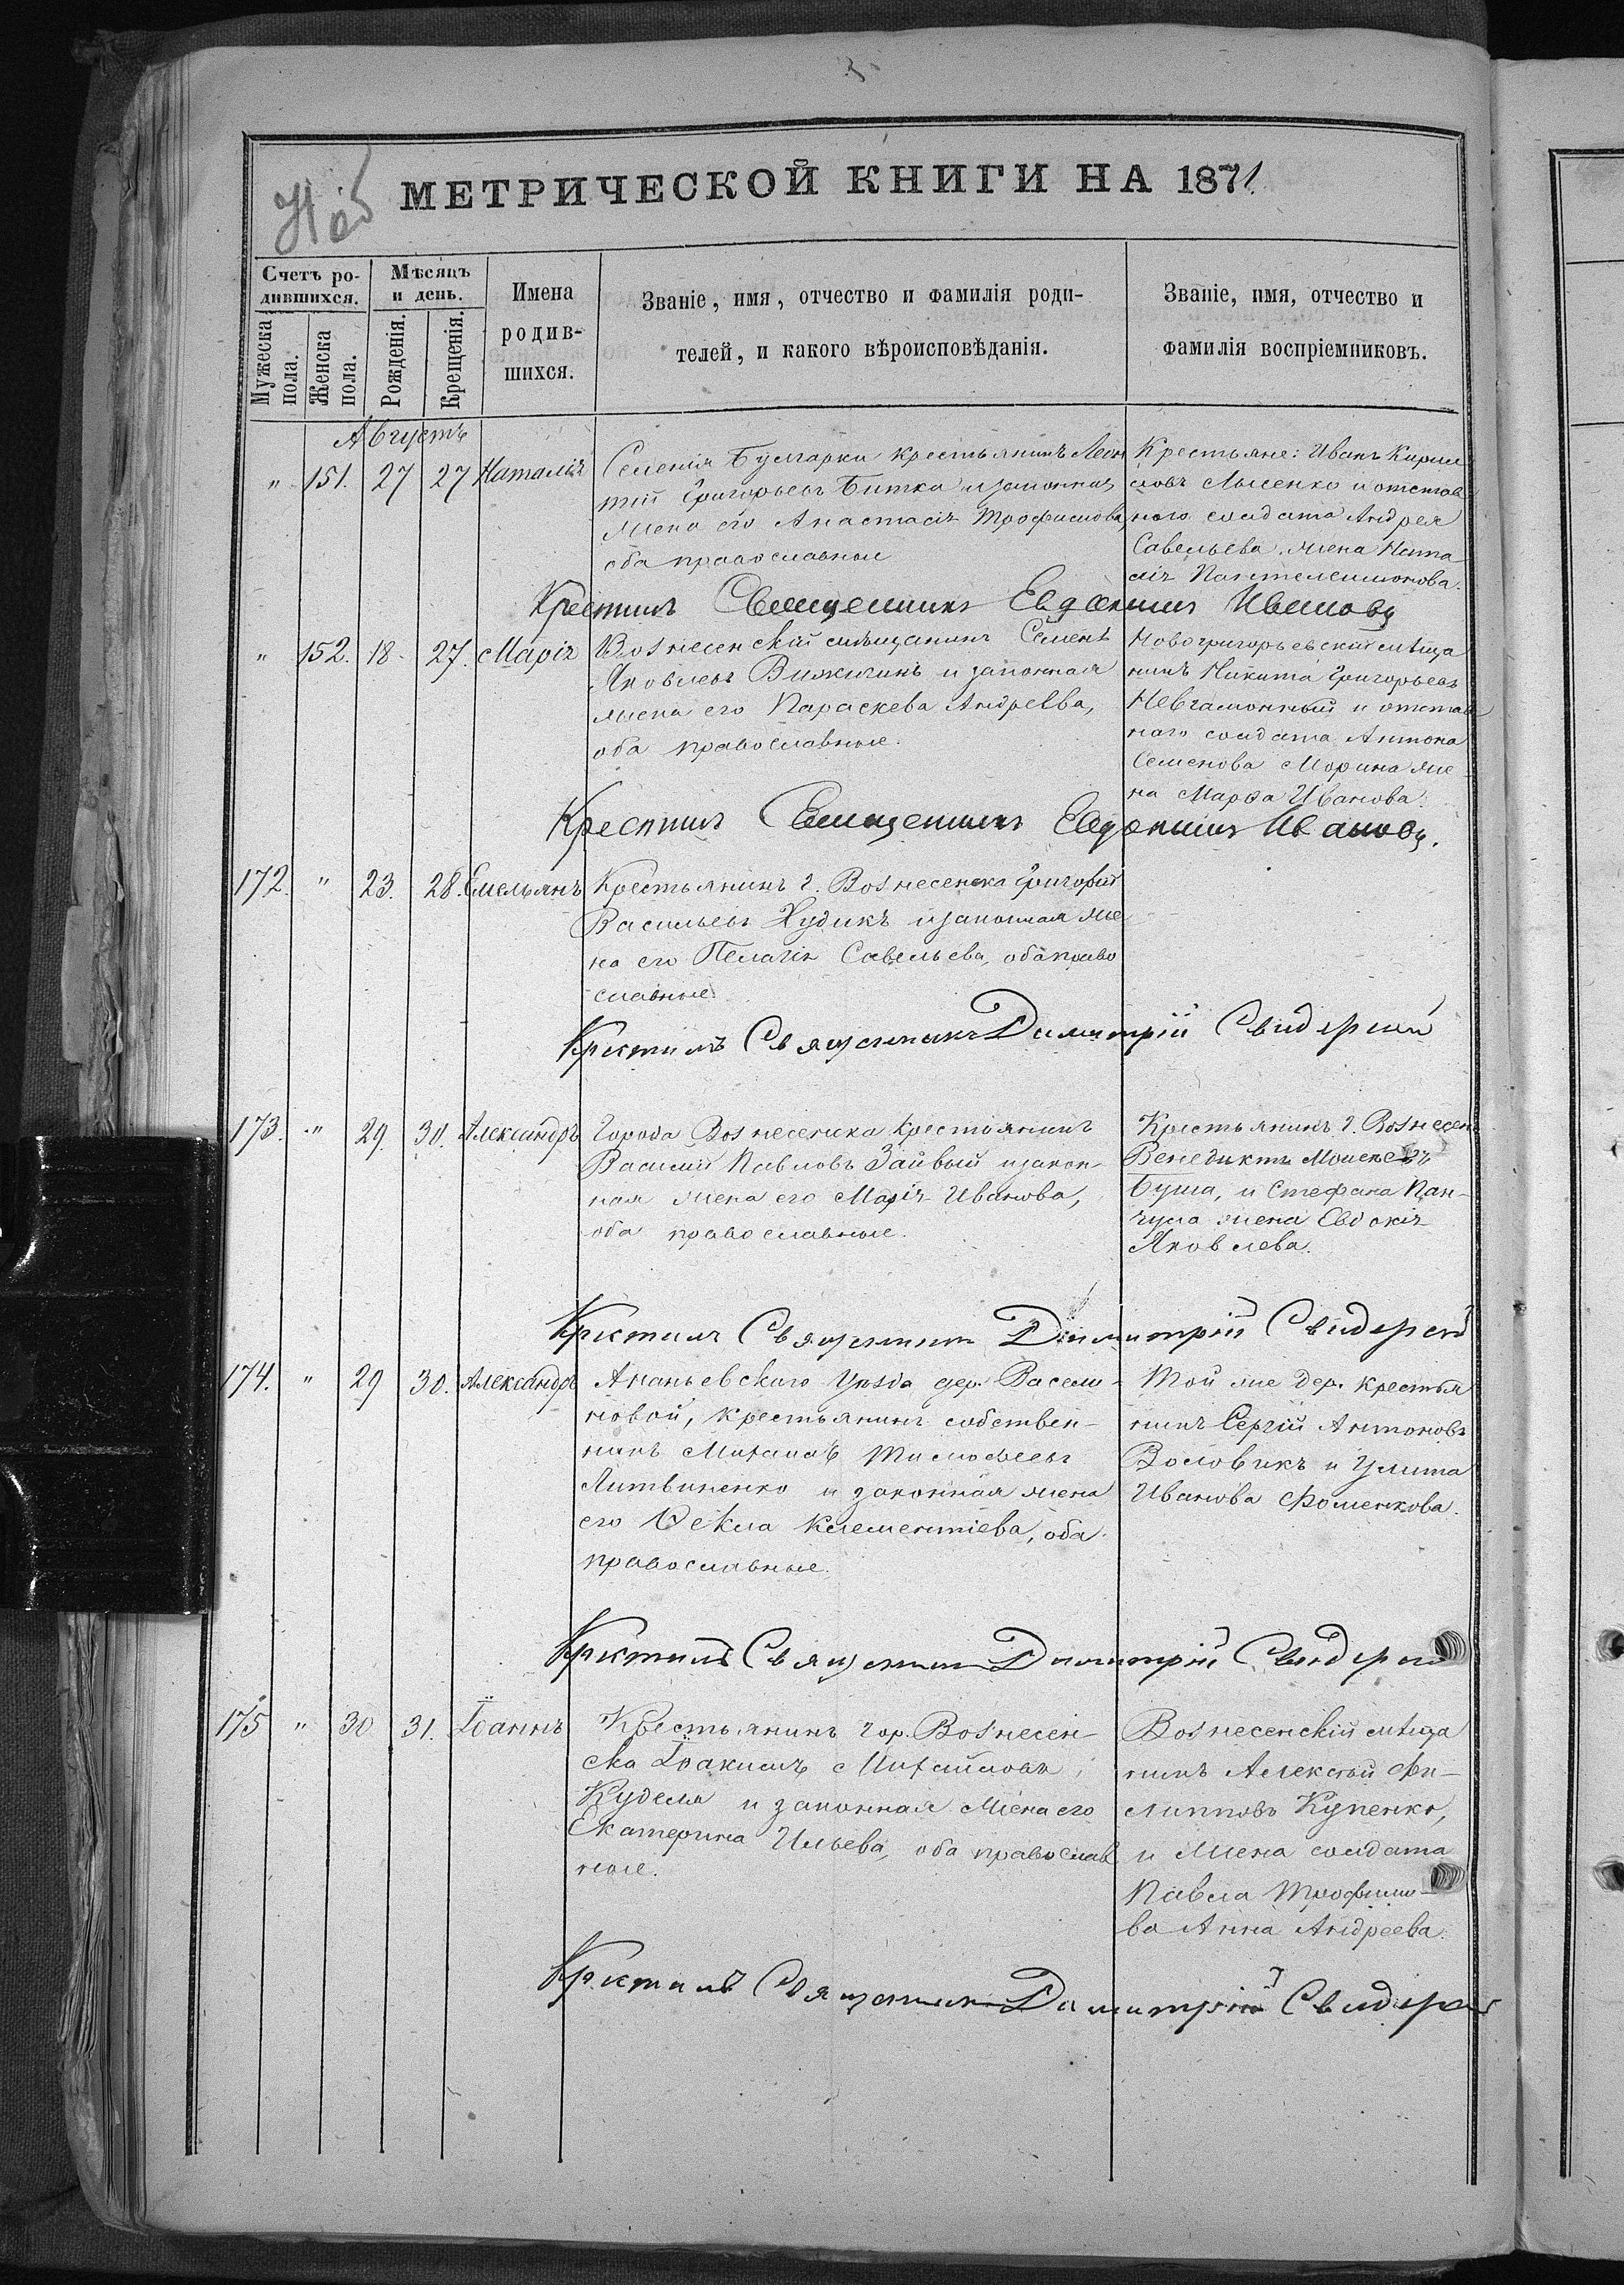 МЕТРИЧЕСКОЙ КНИГИ НА 1871.
Счетъ ро-
дившихся.
Мужеска пола.
Женска пола.
Мѣсяцъ
и день.
Рожденія.
Крещенія.
Имена
родив-
шихся.
Званіе, имя, отчество и фамилія роди-
телей, и какого вѣроисповѣданія.
Званіе, имя, отчество и
фамилія воспріемниковъ.
Августъ
" 151. 27 27 Наталія
Селенія Булгарки крестьянинъ Леон
тій Григорьевъ Битка и законная
жена его Анастасія Трофимова,
оба православные
Крестьяне: Иванъ Кирил
ловъ Лысенко и отстав
наго солдата Андрея
Савельева жена Ната
лія Пантелеимонова.
Крестилъ Священникъ Евдокимъ Ивановъ
" 152. 18. 27. Марія
Вознесенскій мѣщанинъ Семенъ
Яковлевъ Вижичинъ и законная
жена его Параскева Андреева,
оба православные.
Новогригорьевскій мѣща
нинъ Никита Григорьевъ
и отстав
наго солдата Антона
Семенова Морина же
на Марѳа Иванова.
Крестилъ Священникъ Евдокимъ Ивановъ.
172. " 23. 28. Емельянъ
Крестьянинъ г. Вознесенска Григорій
Васильевъ Худикъ и законная же
на его Пелагія Савельева, оба право
славные.
Крестилъ Священникъ Димитрій Свидерскій
173. " 29. 30. Александръ
Города Вознесенска крестьянинъ
Василій Павловъ Зайвый и закон-
ная жена его Марія Иванова,
оба православные.
Крестьянинъ г. Вознесен
Венедиктъ
Буша, и Стефана Пан-
чула жена Евдокія
Яковлева.
Крестилъ Священникъ Димитрій Свидерскій
174. " 29 30. Александръ
Ананьевскаго Уѣзда дер. Васели-
новой, крестьянинъ собствен-
никъ Михаилъ Тимофеевъ
Литвиненко и законная жена
его Ѳекла Клементіева, оба
православные.
Той же дер. крестья
нинъ Сергій Антоновъ
Воловикъ и Улита
Иванова Фоменкова.
Крестилъ Священникъ Димитрій Свидерскій
175 " 30 31. Іоаннъ
Крестьянинъ гор. Вознесен-
ска Іоакимъ Михайловъ
Куделя и законная жена его
Екатерина Ильева, оба православ
ные.
Вознесенскій мѣща
нинъ Алексѣй Фи-
липповъ Купенко,
и жена солдата
Павла Трофимо-
ва Анна Андреева.
Крестилъ Священникъ Димитрій Свидерскій